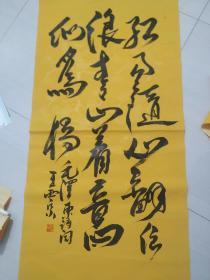 红雨随心翻作
浪青山着意
化为桥
毛泽东诗词